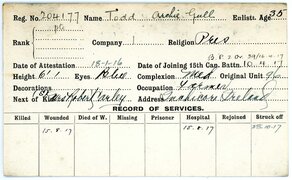 Reg. No. 204177 Name. Todd: Archie Gull Enlists. Age 35
Rank pte Company Religion Pres
Date of Attestation 18-1-16 Date of Joining 15th Can. Battn. 10.4.17
Height 6'1 Eyes Blue Complexion Med Original Unit 96
Decorations Occupation Farmer
Next of Kin Robert Address Ireland
RECORD OF SERVICES.
Killed Wounded Died of W. Missing Prisoner Hospital Rejoined Struck off
15-8-17 15-8-17 23-10-17